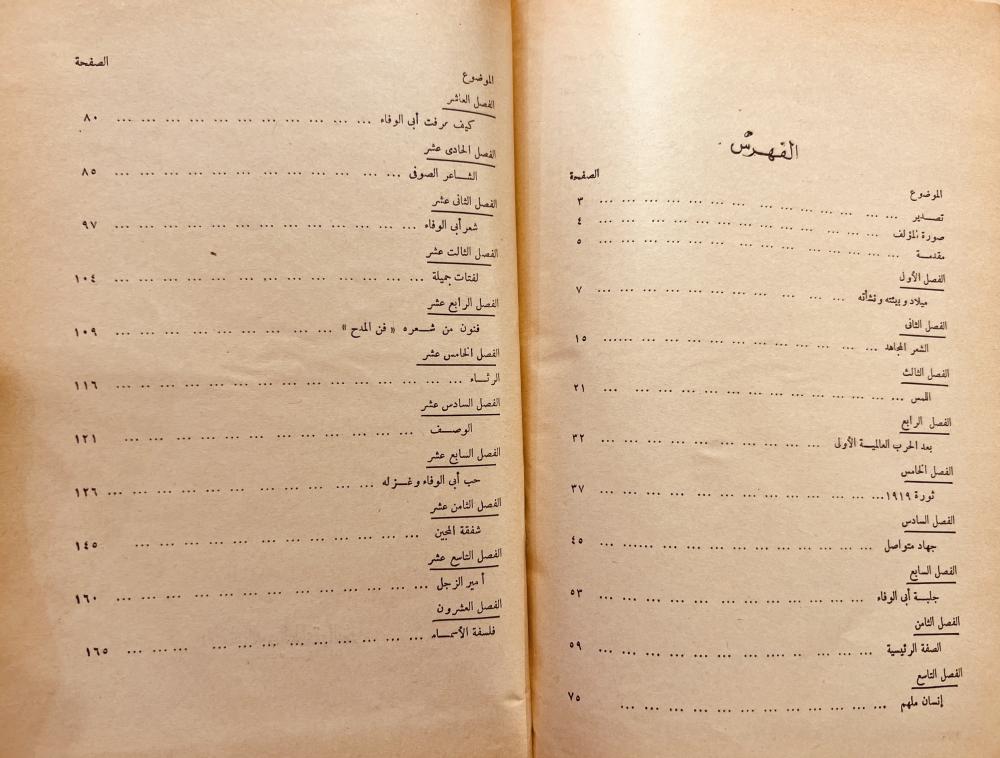 الفهرس
الموضوع الصفحة
تصدير ... ٣
صورة المؤلف ... ٤
مقدمة ... ٥
الفصل الأول
ميلاد وبيئته ونشأته ... ٧
الفصل الثانى
الشعر المجاهد ... ١٥
الفصل الثالث
اللمس ... ٢١
الفصل الرابع
بعد الحرب العالمية الأولى ... ٣٢
الفصل الخامس
ثورة ١٩١٩ ... ٣٧
الفصل السادس
جهاد متواصل ... ٤٥
الفصل السابع
جلبة أبى الوفاء ... ٥٣
الفصل الثامن
الصفة الرئيسية ... ٥٩
الفصل التاسع
إنسان ملهم ... ٧٥
الموضوع الصفحة
الفصل العاشر
كيف عرفت أبى الوفاء ... ٨٠
الفصل الحادى عشر
الشاعر الصوفى ... ٨٥
الفصل الثانى عشر
شعر أبى الوفاء ... ٩٧
الفصل الثالث عشر
لفتات جميلة ... ١٠٤
الفصل الرابع عشر
فنون من شعره « فن المدح » ... ١٠٩
الفصل الخامس عشر
الرثاء ... ١١٦
الفصل السادس عشر
الوصف ... ١٢١
الفصل السابع عشر
حب أبى الوفاء وغزله ... ١٢٦
الفصل الثامن عشر
شفقة المحبين ... ١٤٥
الفصل التاسع عشر
أمير الزجل ... ١٦٠
الفصل العشرون
فلسفة الأسماء ... ١٦٥